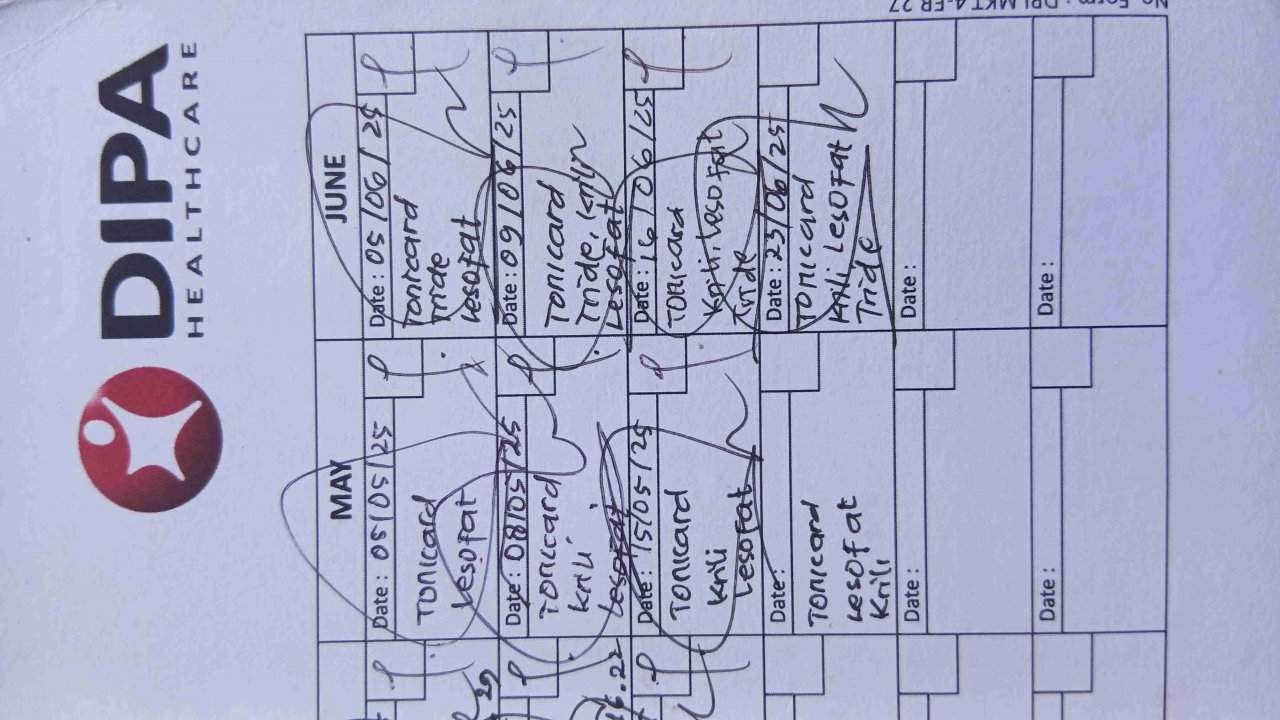 DIPA
HEALTHCARE
MAY
Date: 05/05/25
TONICARD
Lesofat
Date: 08/05/25
TONICARD
Krili
Lesofat
Date: 15/05/25
TONICARD
Krili
Lesofat
Date:
TONICARD
Lesofat
Krili
Date:
Date:
JUNE
Date: 05/06/25
TONICARD
Tride
Lesofat
Date: 09/06/25
TONICARD
Tride, Krili
Lesofat
Date: 16/06/25
TONICARD
Krili, Lesofat
Tride
Date: 23/06/25
TONICARD
Krili Lesofat
Tride
Date:
Date: